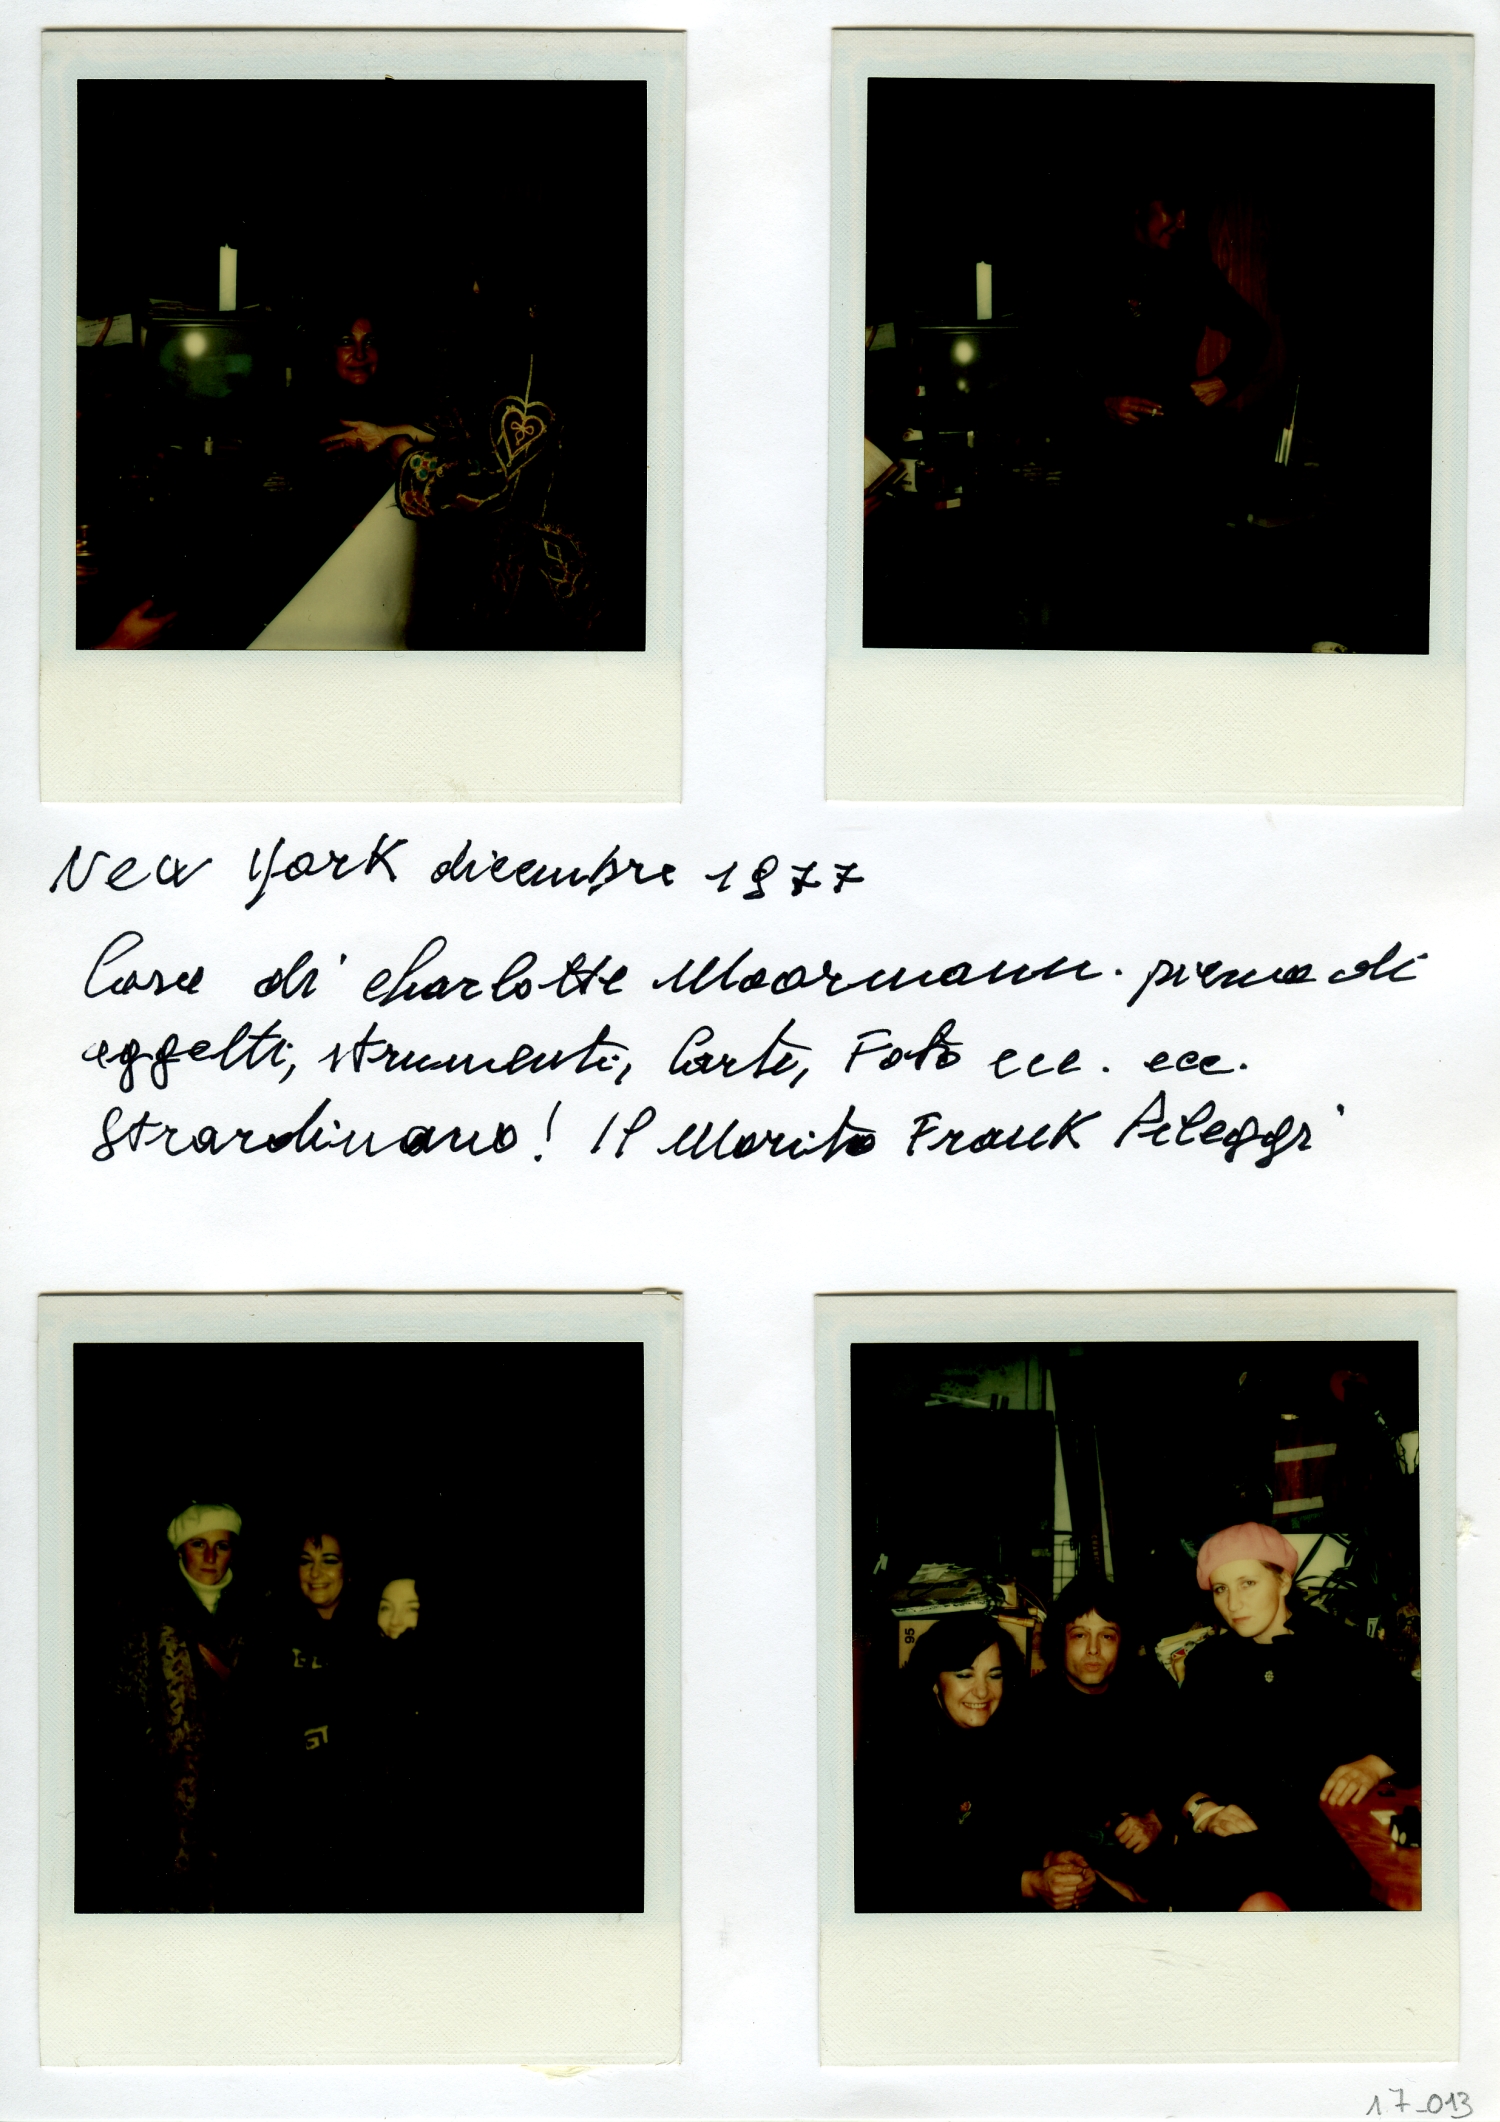 New York dicembre 1977
Casa di charlotte Moormann. piena di
oggetti, strumenti, Carte, Foto ecc. ecc.
Strardinario! Il Marito Frank Pileggi
95
17_013